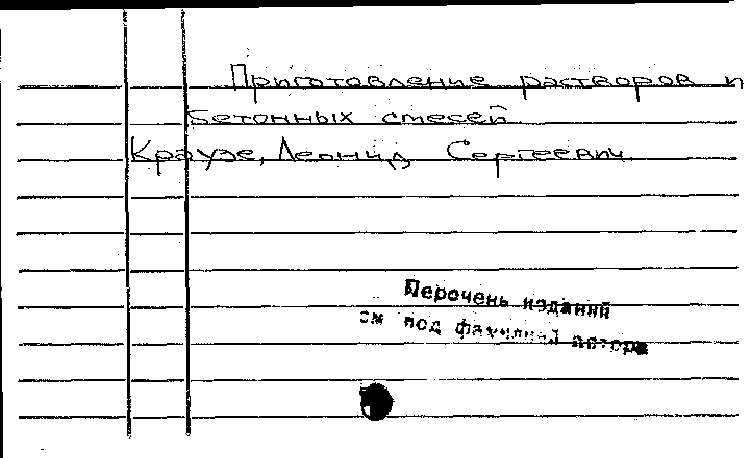 Приготовление растворов и
бетонных смесей
Краузе, Леонид Сергеевич
Перечень изданий
см под фамилией автора